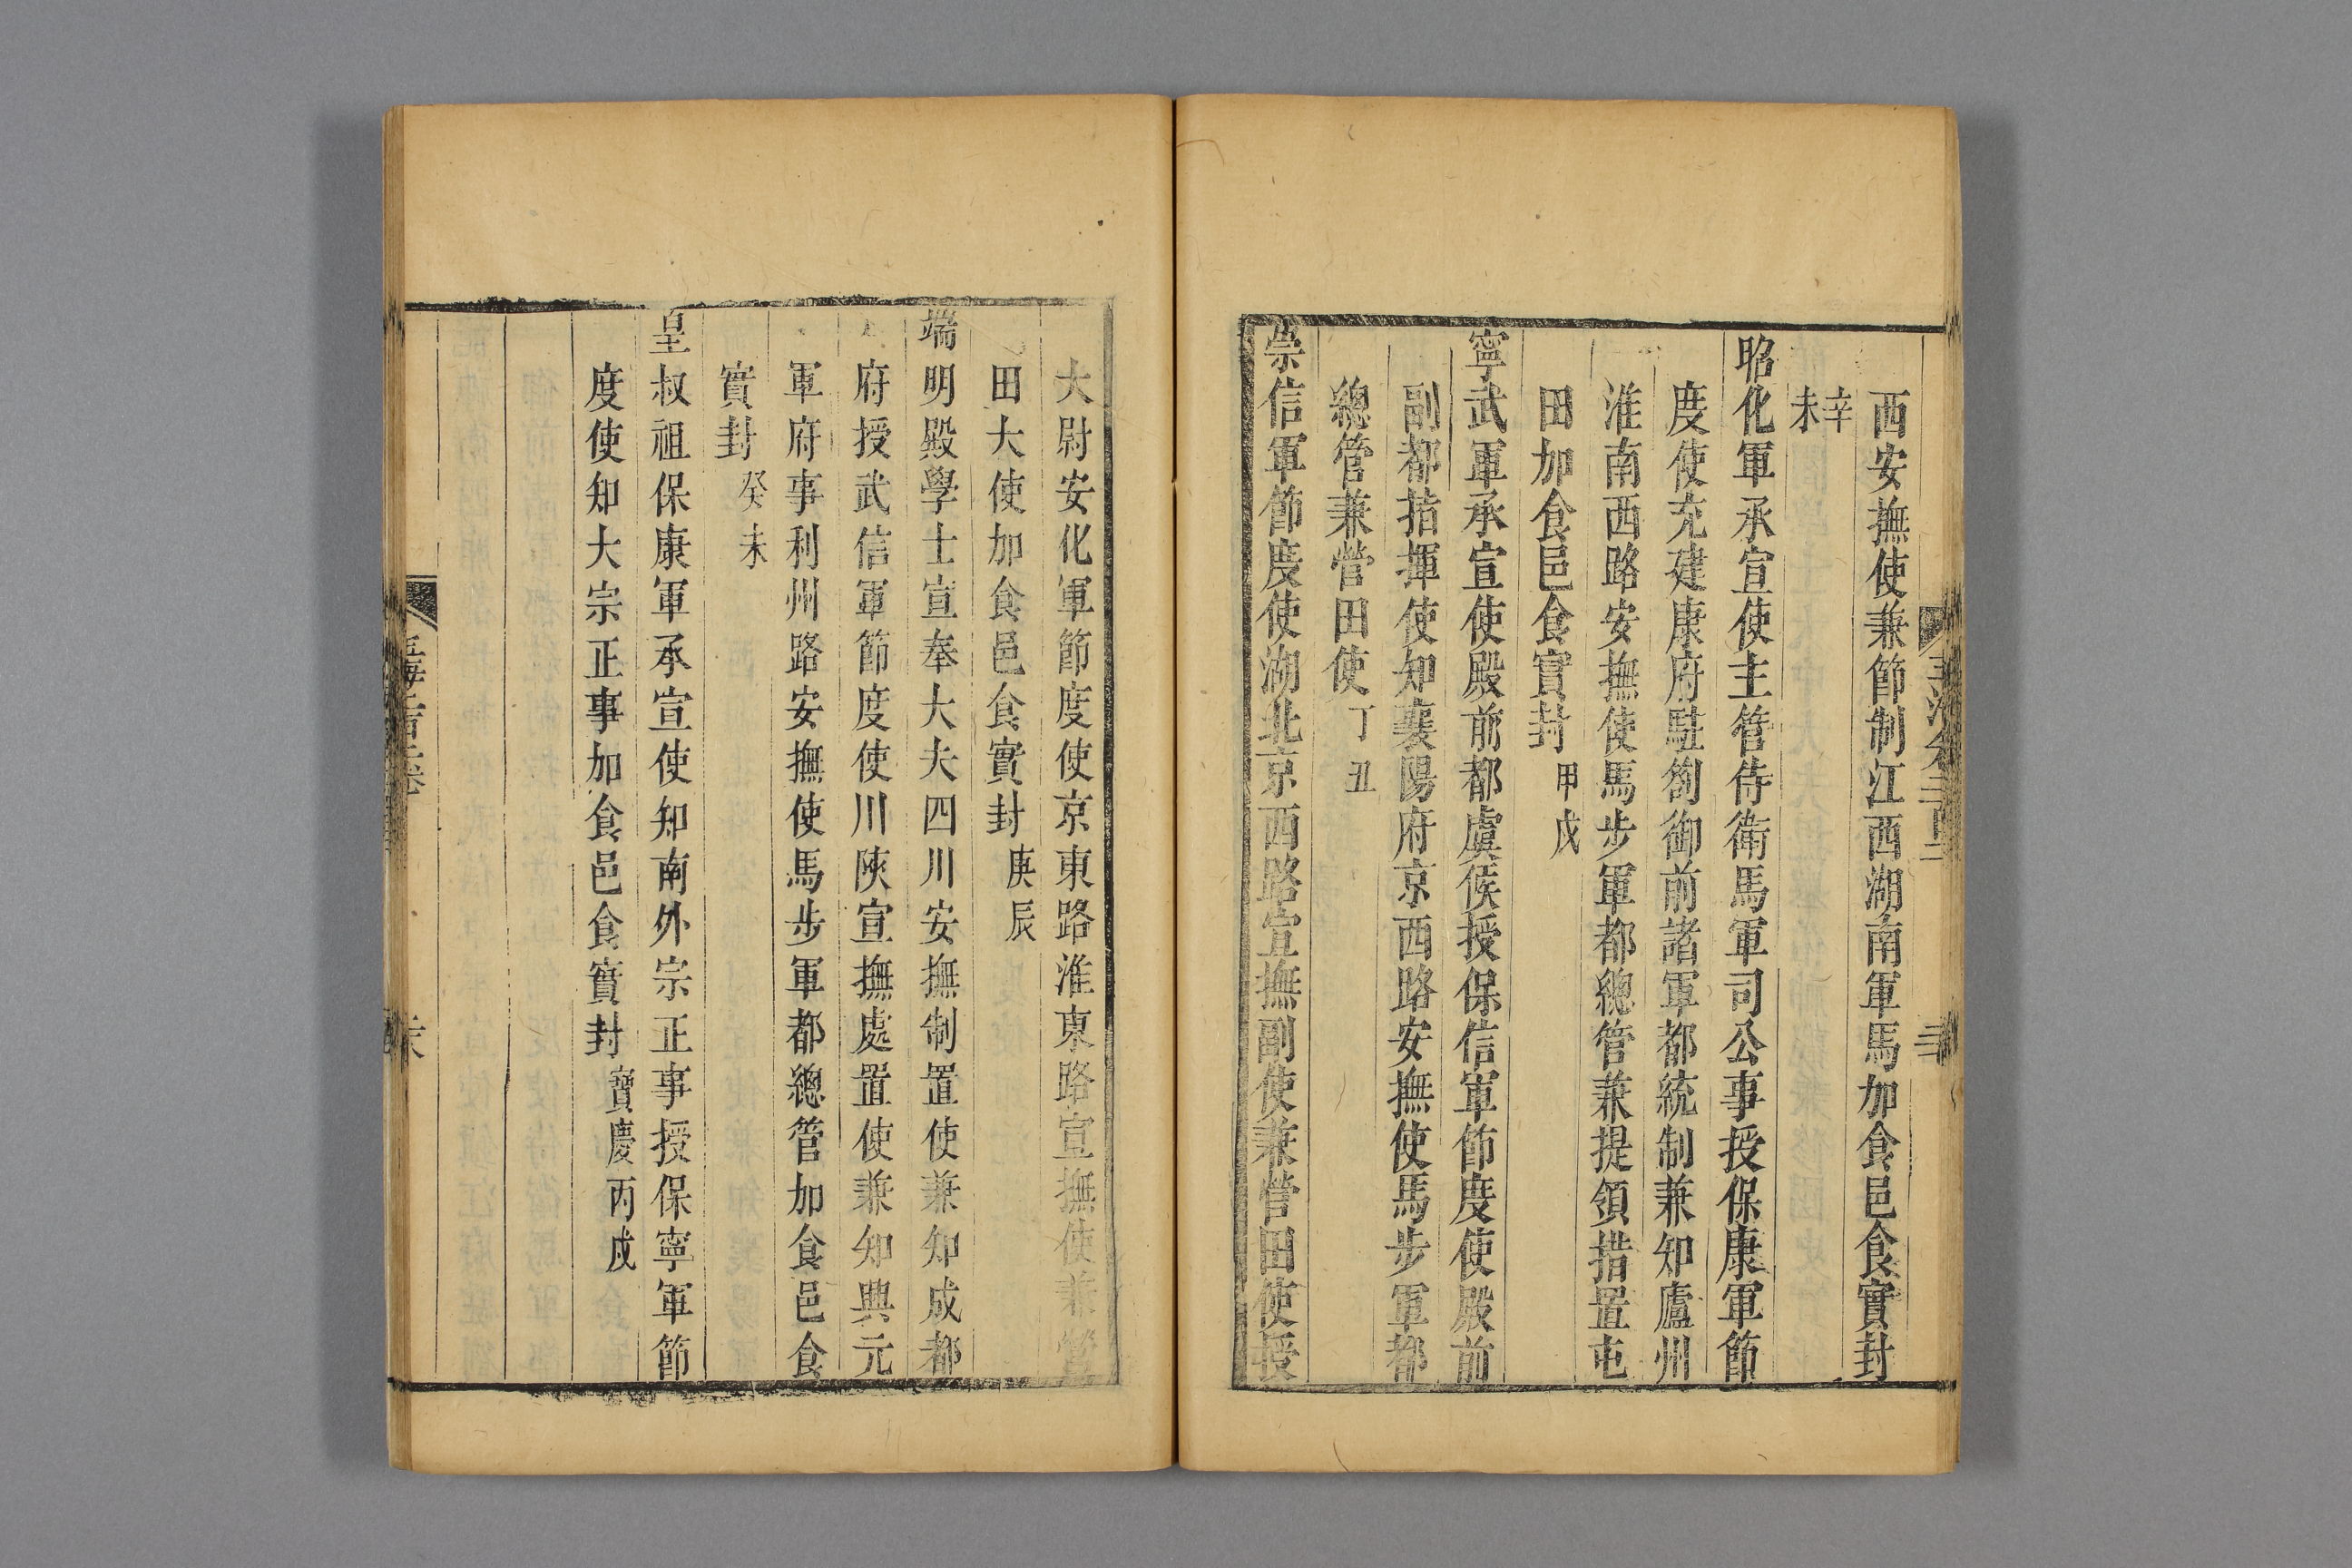 西安撫使兼節制江西湖南軍馬加食邑食實封
辛未
昭化軍承宣使主管侍衛馬軍司公事授保康軍節
度使充建康府駐劄御前諸軍都統制兼知廬州
淮南西路安撫使馬步軍都總管兼提領措置屯
田加食邑食實封甲戌
寧武軍承宣使殿前都虞候授保信軍節度使殿前
副都指揮使知襄陽府京西路安撫使馬步軍都
總管兼營田使丁丑
崇信軍節度使湖北京西路宣撫副使兼營田使授
大尉安化軍節度使京東路淮東路宣撫使兼營
田大使加食邑食實封庚辰
端明殿學士宣奉大夫四川安撫制置使兼知成都
府授武信軍節度使川陝宣撫處置使兼知興元
軍府事利州路安撫使馬步軍都總管加食邑食
實封癸未
皇叔祖保康軍承宣使知南外宗正事授保寧軍節
度使知大宗正事加食邑食實封寶慶丙戌